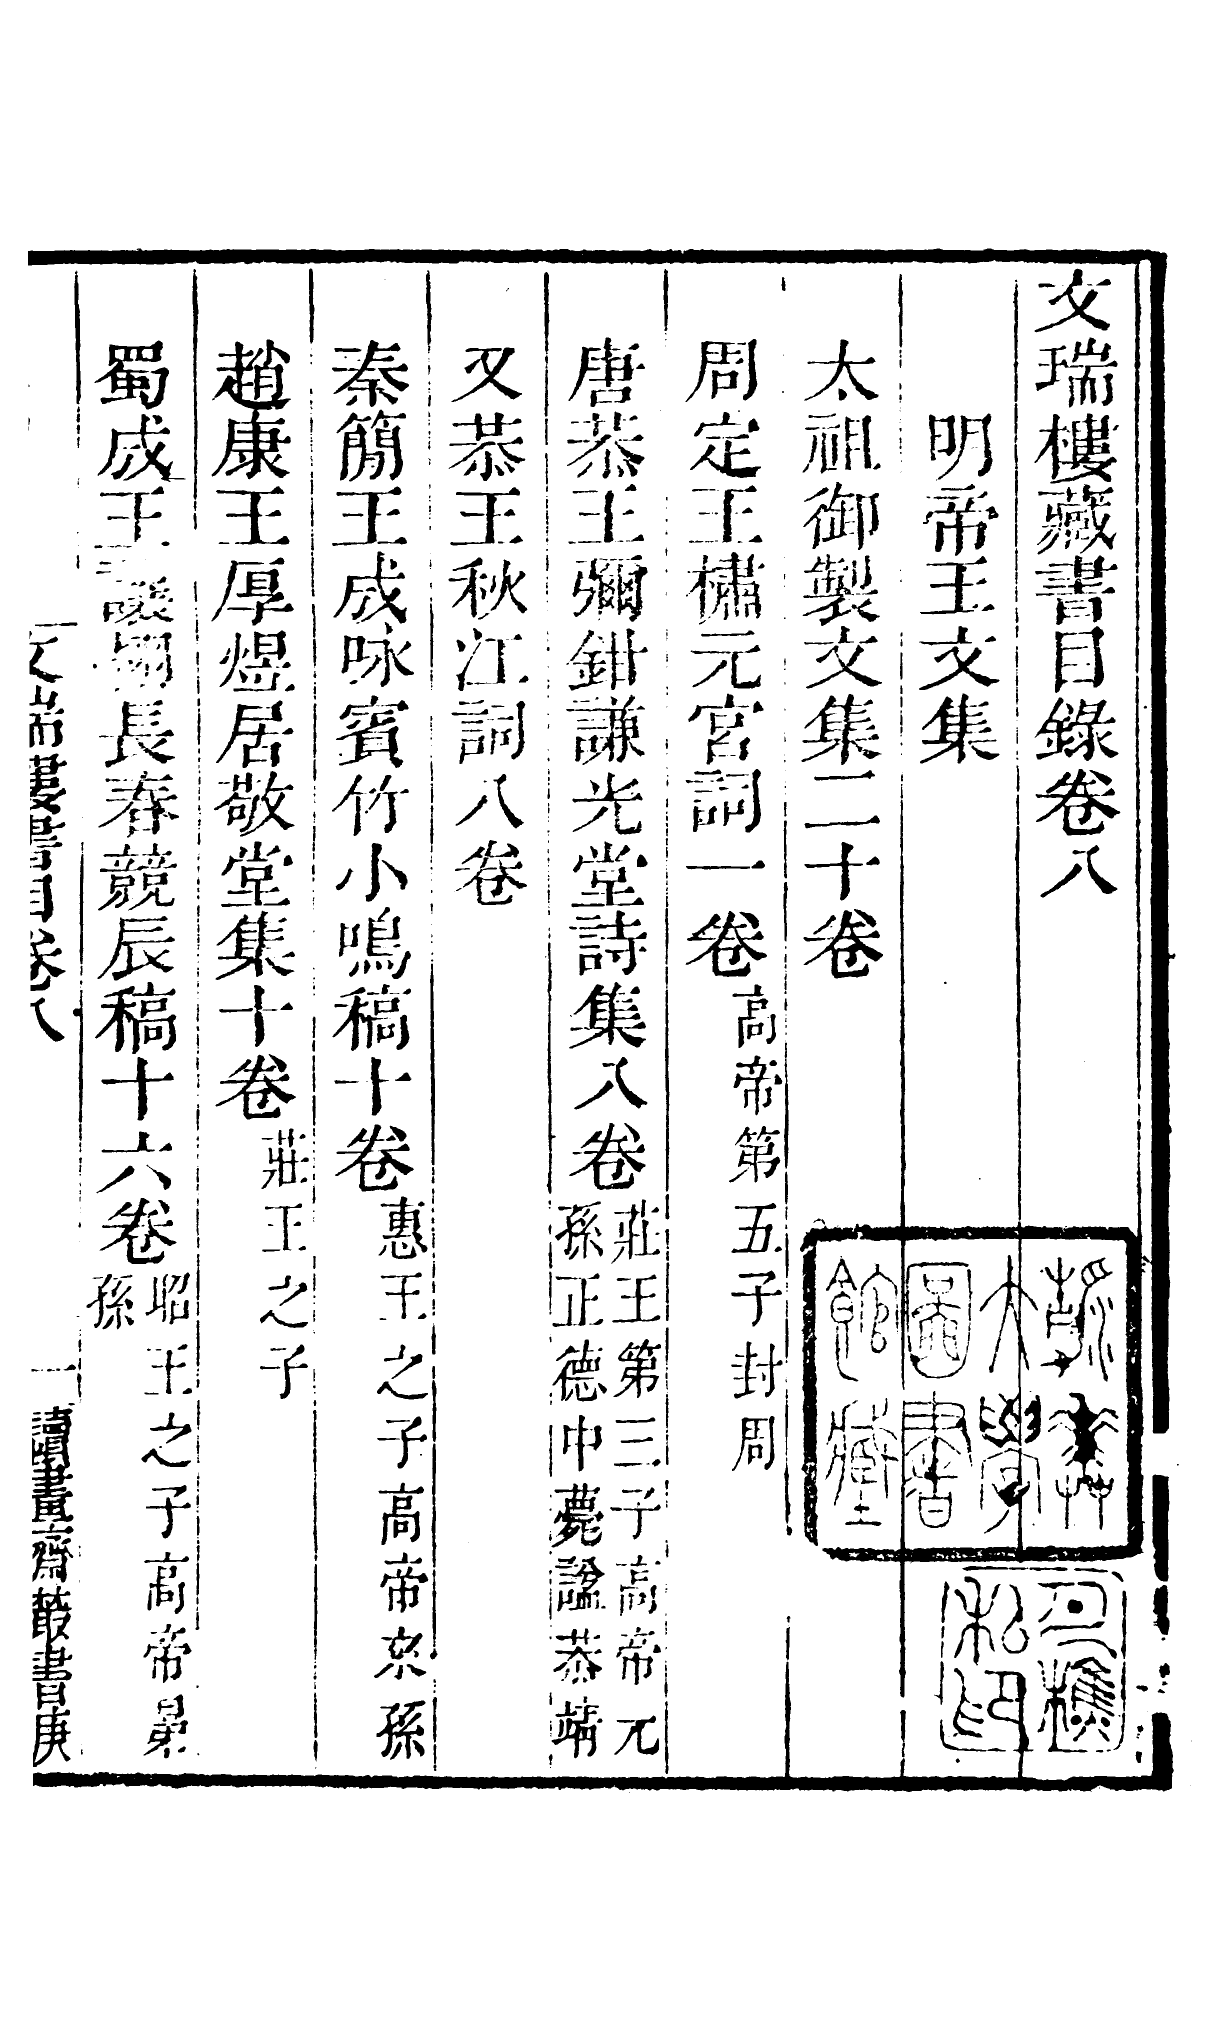 文瑞樓藏書目錄卷八
明帝王文集
太祖御製文集二十卷
周定王橚元宮詞一卷 高帝第五子封周
唐恭王彌鉗謙光堂詩集八卷 莊王第三子高帝元孫正德中薨諡恭靖
又恭王秋江詞八卷
秦簡王成咏賓竹小鳴稿十卷 惠王之子高帝來孫
趙康王厚煜居敬堂集十卷 莊王之子
蜀成王讓栩長春競辰稿十六卷 昭王之子高帝晜孫
文瑞樓書目卷八 一 讀畫齋叢書庚
大學
圖書
館藏
樵
私印